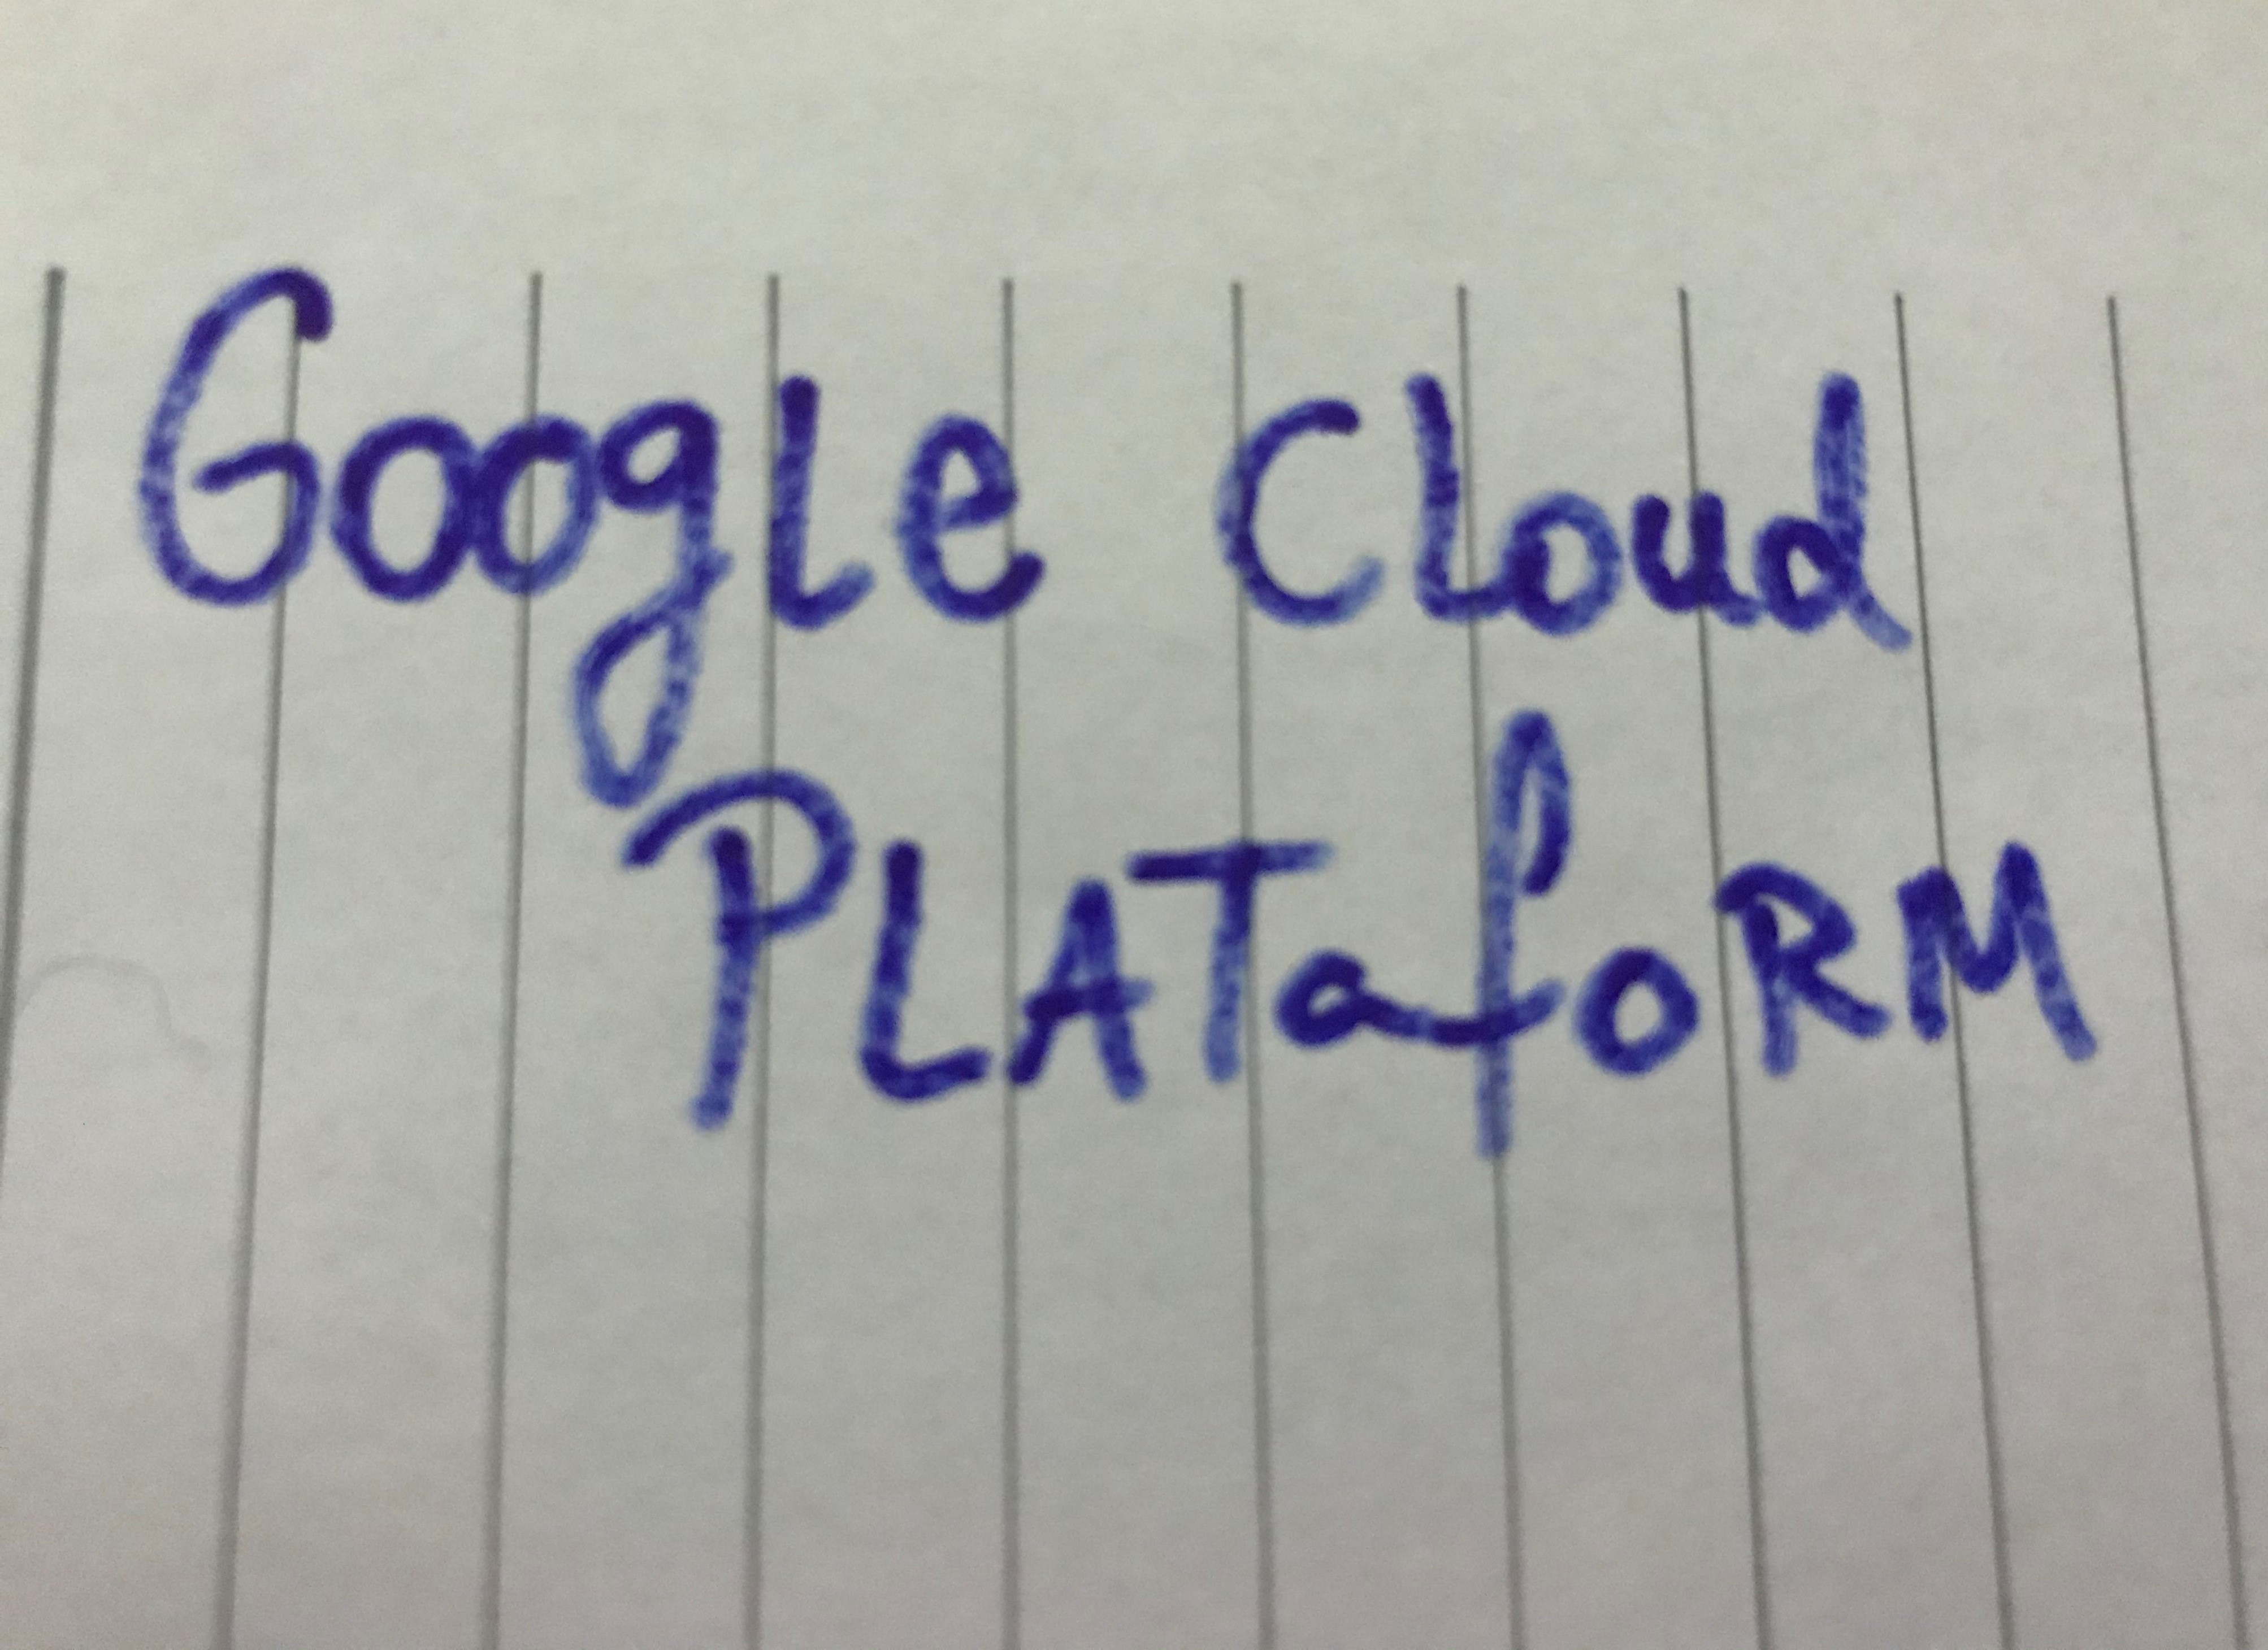 Google Cloud
PLATafoRM